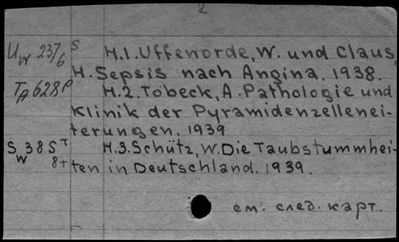 2
Uw 237/6 S H.1. Uffenorde, W. und Claus,
H. Sepsis nach Angina, 1938.
TA 628 P H.2. Tobeck, A. Pathologie und
Klinik der Pyramidenzellenei-
terungen, 1939
Sw 385 T/8+ H.3. Schütz, W. Die Taubstummhei-
ten in Deutschland. 1939.
см. след. карт.